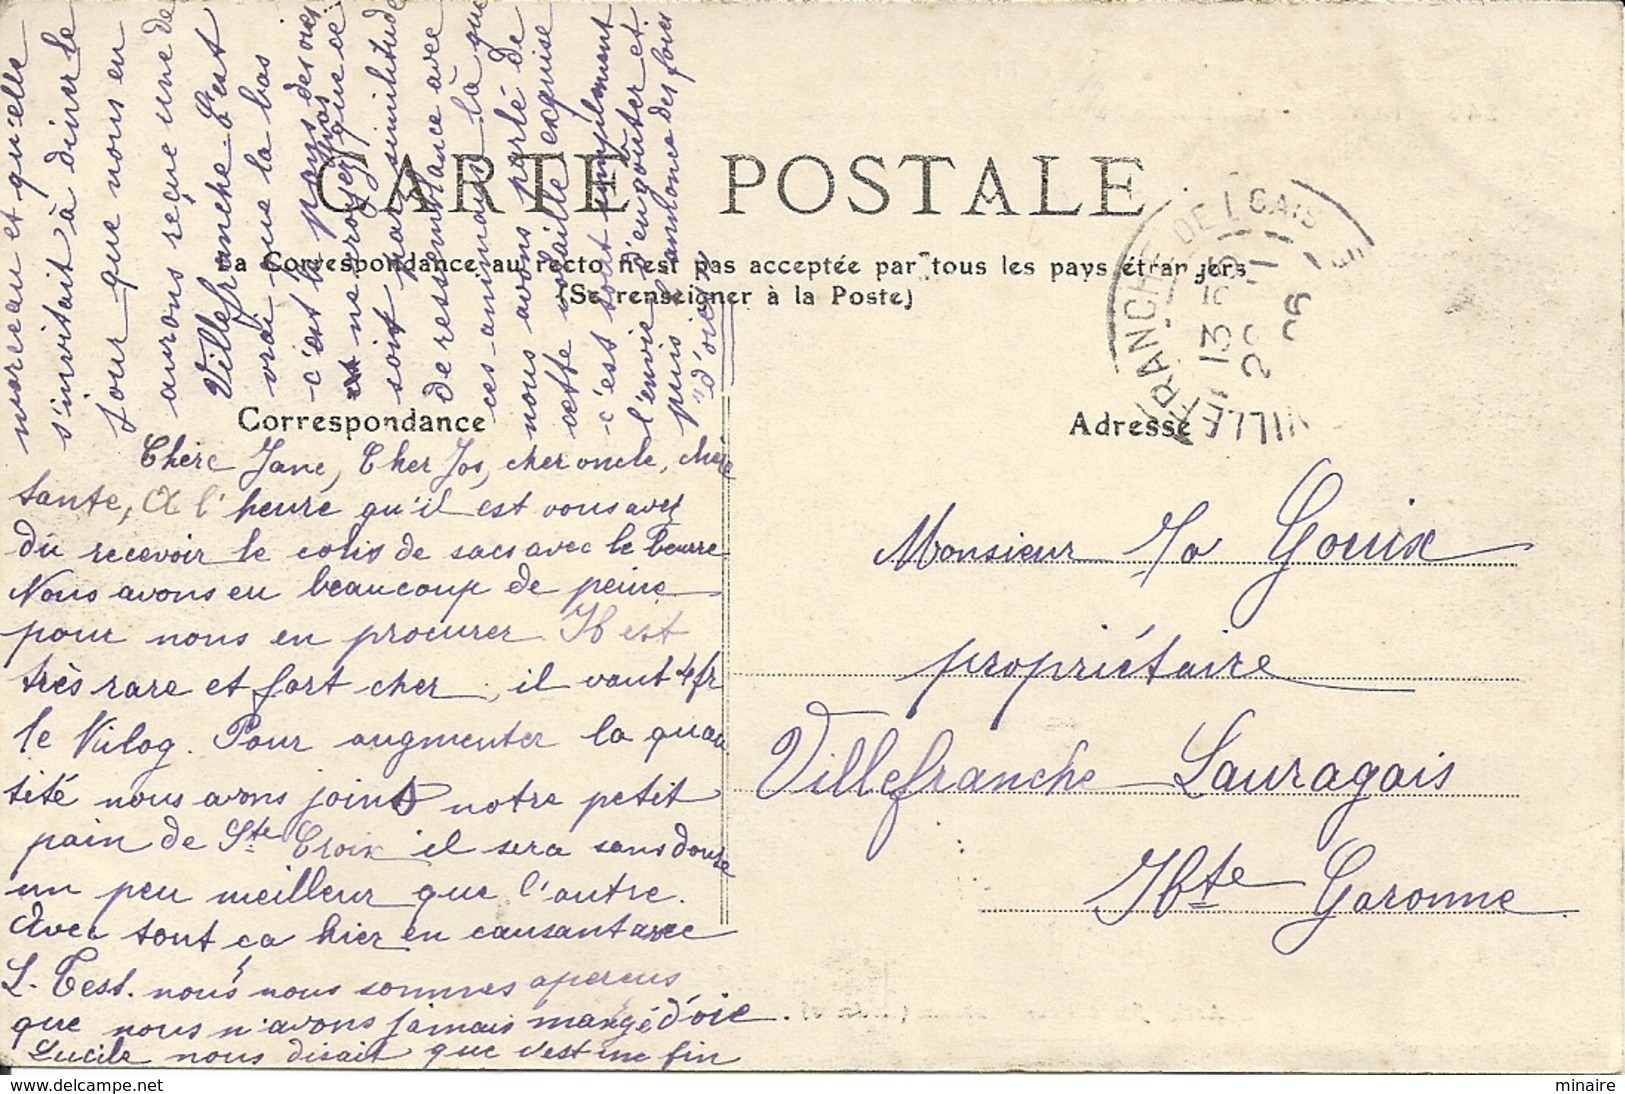 CARTE POSTALE
La Correspondance au recto n'est pas acceptée par tous les pays étrangers
(Se renseigner à la Poste)
Correspondance
Adresse
Chère Jane, Cher Jos, cher oncle, chère
tante, A l'heure qu'il est vous avez
dû recevoir le colis de sacs avec le beurre
Nous avons eu beaucoup de peine
pour nous en procurer Il est
très rare et fort cher, il vaut 4 fr
le kilog. Pour augmenter la quan
tité nous avons joint notre petit
pain de Ste Croix il sera sans doute
un peu meilleur que l'autre.
Avec tout ça hier en causant avec
L. Test. nous nous sommes aperçus
que nous n'avons jamais mangé d'oie.
Lucile nous disait que c'est un fin
morceau et qu'elle
s'invitait à diner le
jour que nous en
aurons reçue une de
Villefranche. C'est
vrai que la bas
c'est le pays des oies
ne croyez pas que ce
soit par similitude
de ressemblance avec
ces animaux là que
nous avons parlé de
cette volaille exquise
c'est tout simplement
l'envie d'en goûter et
puis l'annonce des foies
"d'oies"
Monsieur Jo Gouix
propriétaire
Villefranche-Lauragais
Hte Garonne
VILLEFRANCHE DE LGAIS
minaire